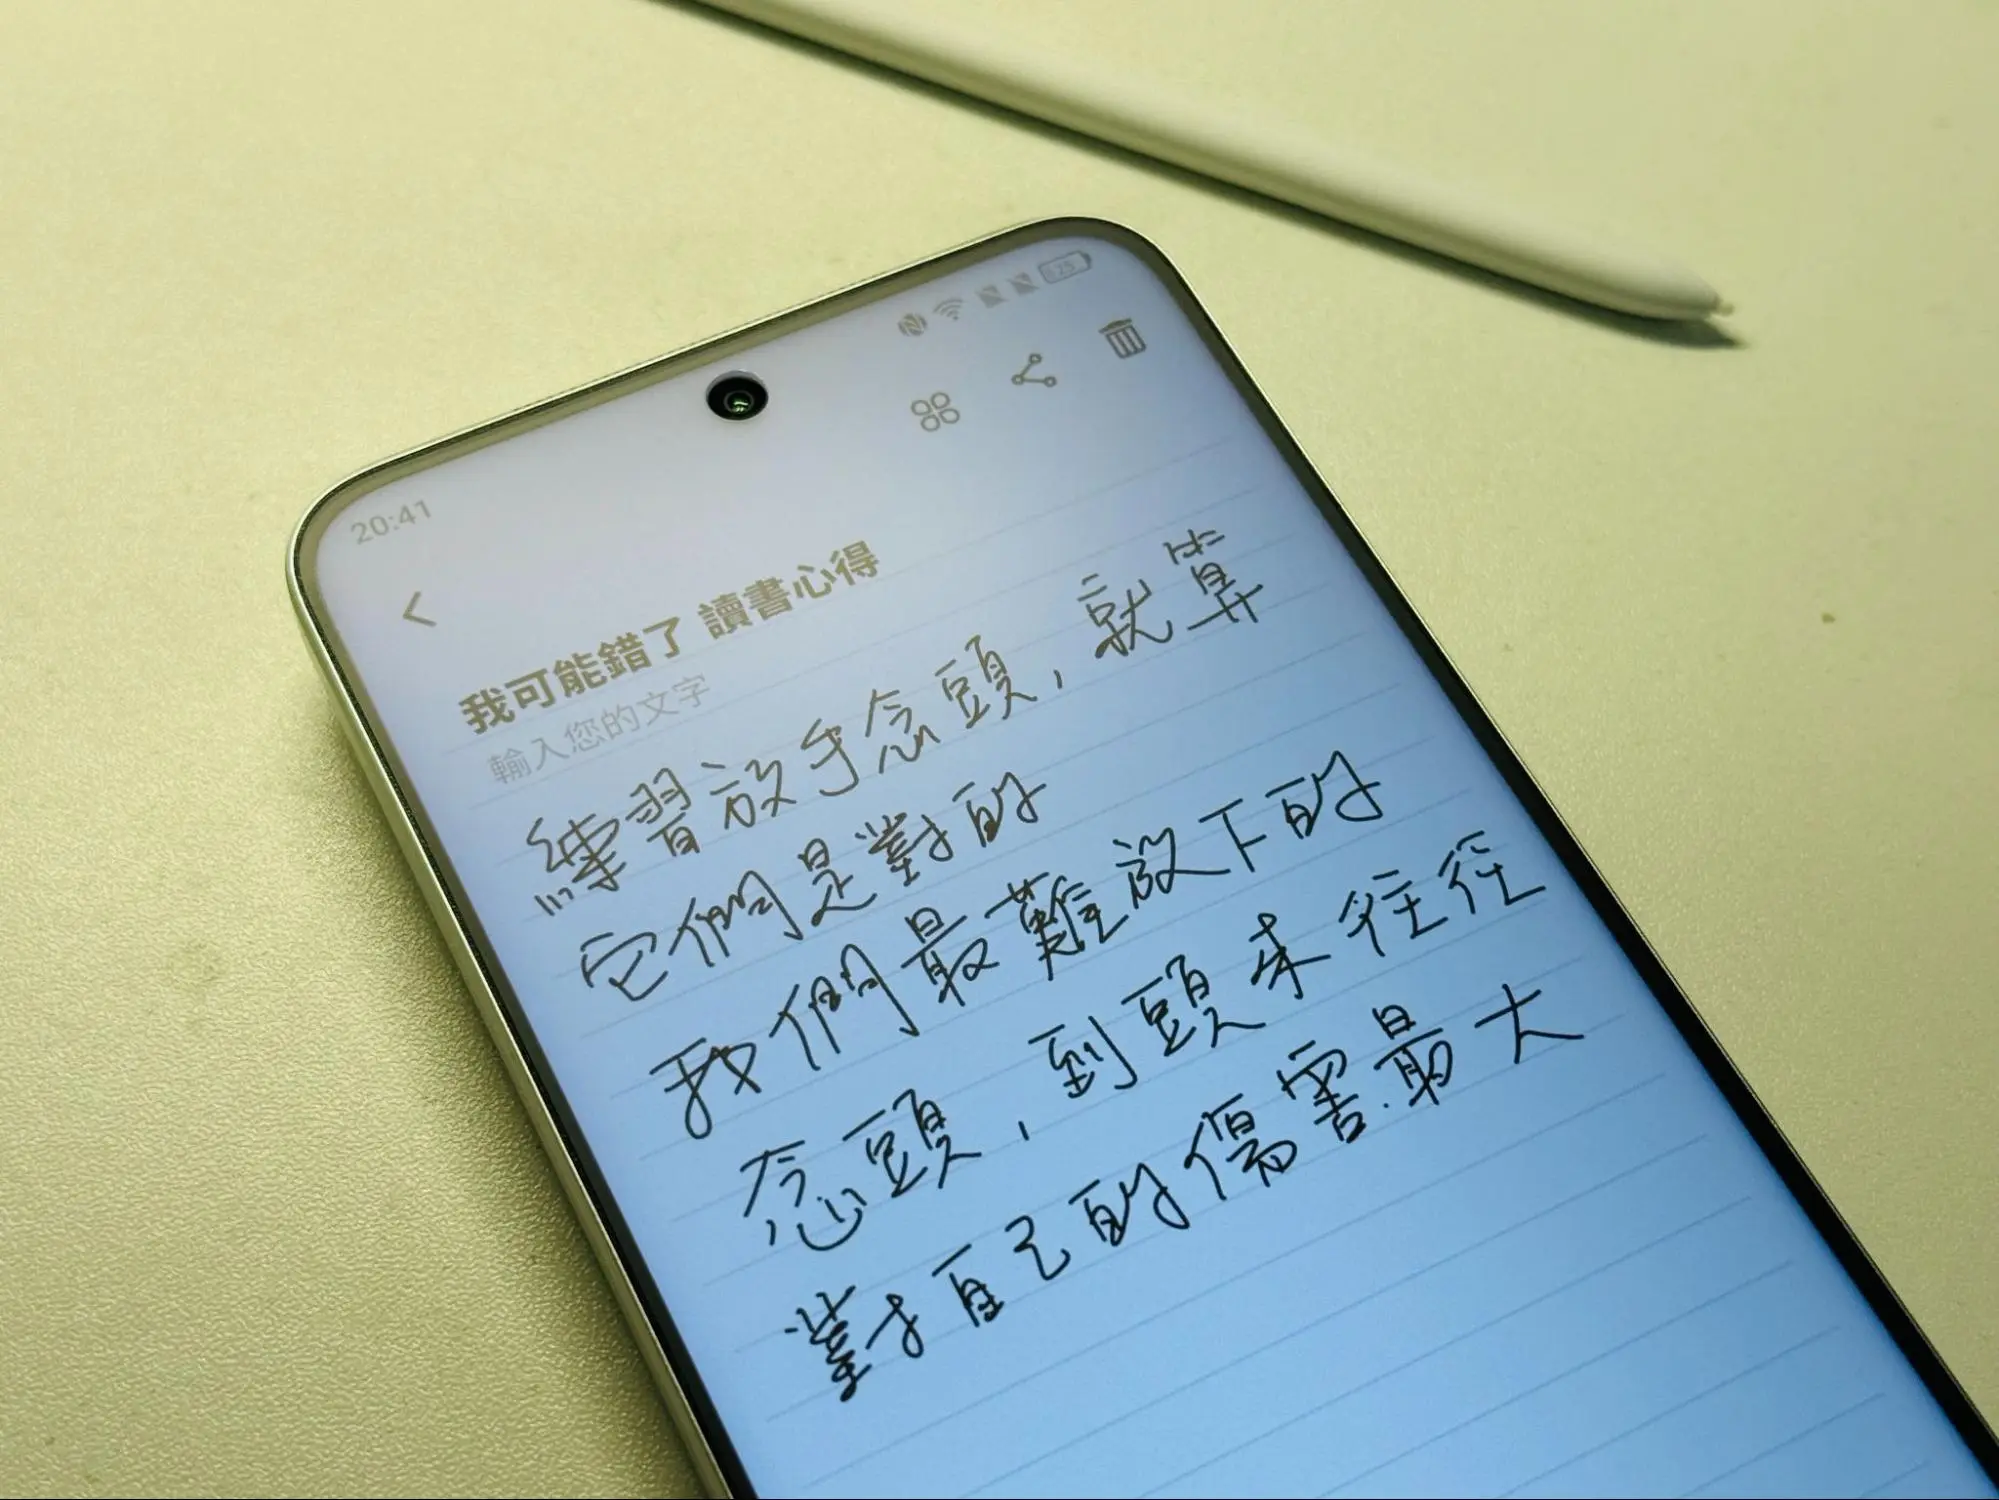 20:41
我可能錯了 讀書心得
輸入您的文字
練習放手念頭，就算
它們是對的
我們最難放下的
念頭，到頭來往往
對自己的傷害最大